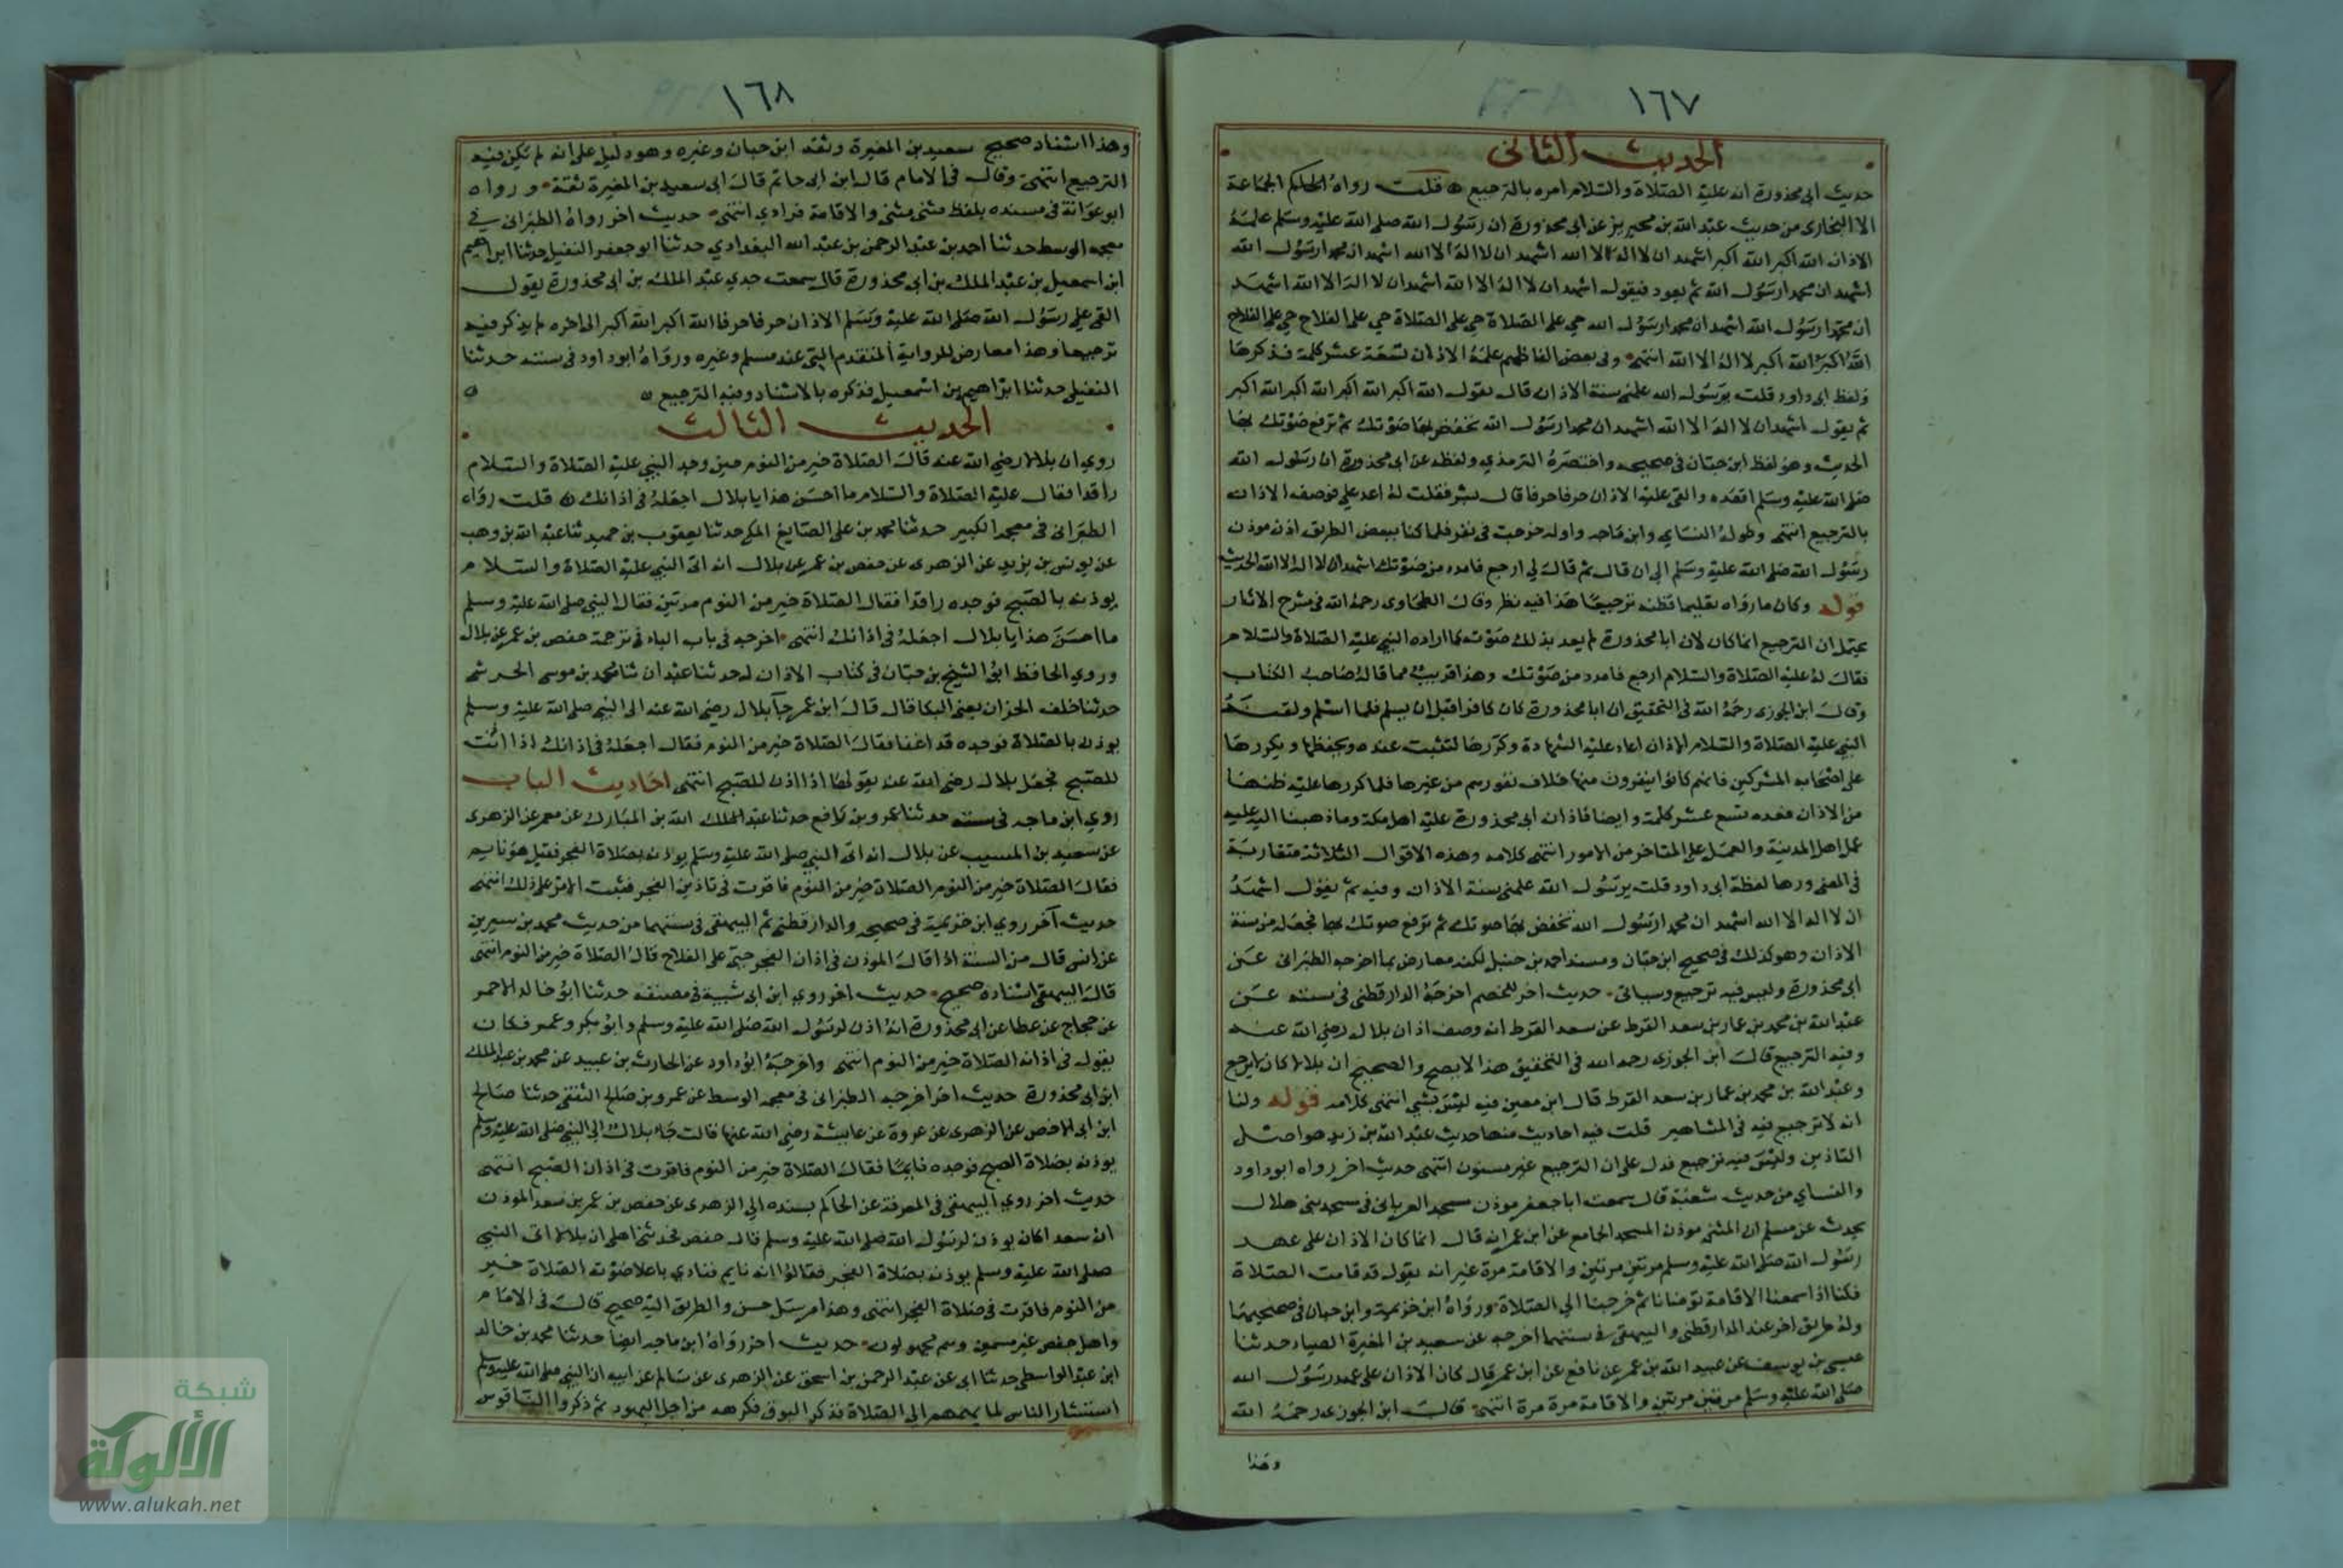 ١٦٧
الحديث الثاني
حديث ابى محذورة انه عليه الصلاة والسلام امره بالترجيع قلت رواه الجماعة
الا البخارى من حديث عبد الله بن محيريز عن ابى محذورة ان رسول الله صلى الله عليه وسلم علمه
الاذان الله اكبر الله اكبر اشهد ان لا اله الا الله اشهد ان لا اله الا الله اشهد ان محمدا رسول الله
اشهد ان محمدا رسول الله ثم يعود فيقول اشهد ان لا اله الا الله اشهد ان لا اله الا الله اشهد
ان محمدا رسول الله اشهد ان محمدا رسول الله حي على الصلاة حي على الصلاة حي على الفلاح حي على الفلاح
الله اكبر الله اكبر لا اله الا الله انتهى وفى بعض الفاظهم علمه الاذان تسعة عشر كلمة فذكرها
ولفظ ابى داود قلت يرسول الله علمنى سنة الاذان قال تقول الله اكبر الله اكبر الله اكبر الله اكبر
ثم يقول اشهد ان لا اله الا الله اشهد ان محمدا رسول الله تخفض بها صوتك ثم ترفع صوتك بها
الحديث وهو لفظ ابن حبان فى صحيحه واختصره الترمذي ولفظه عن ابى محذورة ان رسول الله
صلى الله عليه وسلم اقعده والقى عليه الاذان حرفا حرفا قال بشر فقلت له اعد على فوصف الاذان
بالترجيع انتهى وطوله النساي وابن ماجه واوله خرجت فى نفر فلما كنا ببعض الطريق اذن موذن
رسول الله صلى الله عليه وسلم الى ان قال ثم قال لى ارجع فامدد من صوتك اشهد ان لا اله الا الله الحديث
قوله وكان ما رواه تعليما فظنه ترجيعا هذا فيه نظر وقال الطحاوى رحمه الله فى شرح الاثار
يحتمل ان الترجيع انما كان لان ابا محذورة لم يعد بذلك صوته كما اراده النبي عليه الصلاة والسلام
فقال له عليه الصلاة والسلام ارجع فامدد من صوتك وهذا قريب مما قاله صاحب الكتاب
وقال ابن الجوزى رحمه الله فى التحقيق ان ابا محذورة كان كافرا قبل ان يسلم فلما اسلم ولقنه
النبي عليه الصلاة والسلام الاذان اعاد عليه الشهادة وكررها لتثبت عنده ويحفظها ويكررها
على اصحابه المشركين فانهم كانوا ينفرون منها خلاف نفورهم من غيرها فلما كررها عليه ظنها
من الاذان فعده تسع عشر كلمة وايضا فاذان ابى محذورة عليه اهل مكة وما ذهبنا اليه عليه
عمل اهل المدينة والعمل على المتاخر من الامور انتهى كلامه وهذه الاقوال الثلاثة متقاربة
فى المعنى وردها لفظة ابى داود قلت يرسول الله علمنى سنة الاذان وفيه ثم يقول اشهد
ان لا اله الا الله اشهد ان محمدا رسول الله تخفض بها صوتك ثم ترفع صوتك بها فجعله من سنة
الاذان وهو كذلك فى صحيح ابن حبان ومسند احمد بن حنبل لكنه معارض بما اخرجه الطبرانى عن
أبى محذورة وليس فيه ترجيع وسياتى حديث اخر للخصم اخرجه الدارقطنى فى سننه عن
عبد الله بن محمد بن عمار بن سعد القرط عن سعد القرط انه وصف اذان بلال رضي الله عنه
وفيه الترجيع قال ابن الجوزى رحمه الله فى التحقيق هذا لا يصح والصحيح ان بلالا كان لا يرجع
وعبد الله بن محمد بن عمار بن سعد القرط قال ابن معين فيه ليس بشي انتهى كلامه قوله ولنا
انه لا ترجيع فيه فى المشاهير قلت فيه احاديث منها حديث عبد الله بن زيد هو اصل
التاذين وليس فيه ترجيع فدل على ان الترجيع غير مسنون انتهى حديث اخر رواه ابو داود
والنساي من حديث شعبة قال سمعت ابا جعفر موذن مسجد العريانى فى مسجد بنى هلال
يحدث عن مسلم ابى المثنى موذن المسجد الجامع عن ابن عمر انه قال انما كان الاذان على عهد
رسول الله صلى الله عليه وسلم مرتين مرتين والاقامة مرة غير انه يقول قد قامت الصلاة
فكنا اذا سمعنا الاقامة توضانا ثم خرجنا الى الصلاة ورواه ابن خزيمة وابن حبان فى صحيحيهما
وله طريق اخر عند الدارقطنى والبيهقى فى سننهما اخرجه عن سعيد بن المغيرة الصياد حدثنا
عيسى بن يوسف عن عبيد الله بن عمر عن نافع عن ابن عمر قال كان الاذان على عهد رسول الله
صلى الله عليه وسلم مرتين مرتين والاقامة مرة مرة انتهى قال ابن الجوزى رحمه الله
وهذا
١٦٨
وهذا اسناد صحيح سعيد بن المغيرة وثقه ابن حبان وغيره وهو دليل على انه لم يكن فيه
الترجيع انتهى وقال فى الامام قال ابن ابى حاتم قال ابى سعيد بن المغيرة ثقة ورواه
ابو عوانة فى مسنده بلفظ مثنى مثنى والاقامة فرادي انتهى حديث اخر رواه الطبرانى في
معجمه الوسط حدثنا احمد بن عبد الرحمن بن عبد الله البغدادي حدثنا ابو جعفر النفيلى حدثنا ابراهيم
ابن اسمعيل بن عبد الملك بن أبى محذورة قال سمعت جدي عبد الملك بن ابى محذورة يقول
القى على رسول الله صلى الله عليه وسلم الاذان حرفا حرفا الله اكبر الله اكبر الى اخره لم يذكر فيه
ترجيعا وهذا معارض للرواية المتقدمة التى عند مسلم وغيره ورواه ابو داود فى سننه حدثنا
النفيلى حدثنا ابراهيم بن اسمعيل فذكره بالاسناد وفيه الترجيع
الحديث الثالث
روي ان بلالا رضي الله عنه قال الصلاة خير من النوم حين وجد النبي عليه الصلاة والسلام
راقدا فقال عليه الصلاة والسلام ما احسن هذا يا بلال اجعله فى اذانك قلت رواه
الطبرانى فى معجمه الكبير حدثنا محمد بن على الصايغ المكى حدثنا يعقوب بن حميد ثنا عبد الله بن وهب
عن يونس بن يزيد عن الزهرى عن حفص بن عمر عن بلال انه اتى النبي عليه الصلاة والسلام
يوذنه بالصبح فوجده راقدا فقال الصلاة خير من النوم مرتين فقال النبي صلى الله عليه وسلم
ما احسن هذا يا بلال اجعله فى اذانك انتهى اخرجه فى باب الباء فى ترجمة حفص بن عمر عن بلال
وروي الحافظ ابو الشيخ بن حبان فى كتاب الاذان له حدثنا عبدان ثنا محمد بن موسى الحرشى
حدثنا خلف الحزان يعنى البكا قال قال ابن عمر جآ بلال رضي الله عنه الى النبي صلى الله عليه وسلم
يوذنه بالصلاة فوجده قد اغفا فقال الصلاة خير من النوم فقال اجعله فى اذانك اذا اذنت
للصبح فجعل بلال رضى الله عنه يقولها اذا اذن للصبح انتهى احاديث الباب
روي ابن ماجه فى سننه حدثنا عمرو بن رافع حدثنا عبد الله بن المبارك عن معمر عن الزهرى
عن سعيد بن المسيب عن بلال انه اتى النبي صلى الله عليه وسلم يوذنه بصلاة الفجر فقيل هو نايم
فقال الصلاة خير من النوم الصلاة خير من النوم فاقرت فى تاذين الفجر فثبت الامر على ذلك انتهى
حديث آخر روي ابن خزيمة فى صحيحه والدارقطنى ثم البيهقى فى سننهما من حديث محمد بن سيرين
عن انس قال من السنة اذا قال الموذن فى اذان الفجر حى على الفلاح قال الصلاة خير من النوم انتهى
قال البيهقى اسناده صحيح حديث اخر روي ابن ابى شيبة فى مصنفه حدثنا ابو خالد الاحمر
عن حجاج عن عطا عن ابى محذورة انه اذن لرسول الله صلى الله عليه وسلم وابو بكر وعمر فكان
يقول فى اذانه الصلاة خير من النوم انتهى واخرجه ابو داود عن الحارث بن عبيد عن محمد بن عبد الملك
ابن ابى محذورة حديث اخر اخرجه الطبرانى فى معجمه الوسط عن عمرو بن صالح الثقفى حدثنا صالح
ابن ابى الاخضر عن الزهرى عن عروة عن عايشة رضي الله عنها قالت جاء بلال الى النبي صلى الله عليه وسلم
يوذنه بصلاة الصبح فوجده نايما فقال الصلاة خير من النوم فاقرت فى اذان الصبح انتهى
حديث اخر روي البيهقى فى المعرفة عن الحاكم بسنده الى الزهرى عن حفص بن عمر بن سعد الموذن
ان سعدا كان يوذن لرسول الله صلى الله عليه وسلم قال حفص فحدثنى اهلى ان بلالا اتى النبي
صلى الله عليه وسلم يوذنه بصلاة الفجر فقالوا انه نايم فنادي باعلا صوته الصلاة خير
من النوم فاقرت فى صلاة الفجر انتهى وهذا مرسل حسن والطريق اليه صحيح قال فى الامام
واهل حفص غير مسمين وهم مجهولون حديث اخر رواه ابن ماجه ايضا حدثنا محمد بن خالد
ابن عبد الله الواسطى حدثنا ابى عن عبد الرحمن بن اسحق عن الزهرى عن سالم عن ابيه ان النبي صلى الله عليه وسلم
استشار الناس لما يهمهم الى الصلاة فذكر البوق فكرهه من اجل اليهود ثم ذكروا الناقوس
شبكة
الألوكة
www.alukah.net